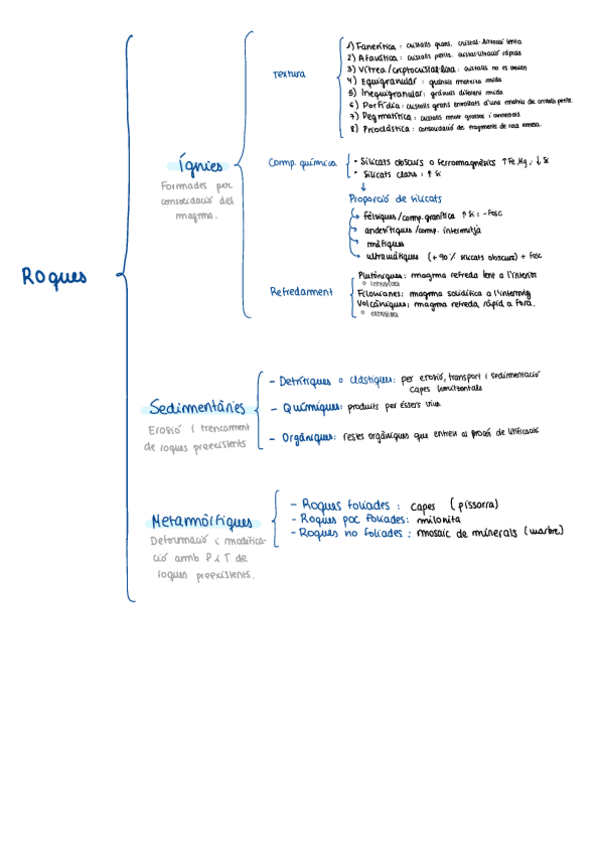 Roques
Ígnies
Formades per
consolidació del
magma.
Textura
1) Fanerítica: cristalls grans. cristal·lització lenta
2) Afanítica: cristalls petits. cristal·lització ràpida
3) Vítrea/criptocristal·lina: cristalls no es veuen
4) Equigranular: grànuls mateixa mida
5) Inequigranular: grànuls diferent mida
6) Porfídia: cristalls grans envoltats d'una matriu de cristalls petits.
7) Pegmatítica: cristalls molt grossos i
8) Piroclàstica: consolidació de fragments de roca
Comp. química
- Silicats obscurs o ferromagnèsics ↑Fe, Mg, ↓Si
• Silicats clars: ↑Si
↓
Proporció de silicats
fèlsiques/comp. granítica ↑Si: -Fosc
andesítiques/comp. intermitjà
màfiques
ultramàfiques (+90% silicats obscurs) + Fosc
Refredament
Plutòniques: magma refreda lent a l'interior
o intrusiva
Filonianes: magma solidifica a l'intermig
Volcàniques: magma refreda, ràpid, a fora.
o extrusiva
Sedimentàries
Erosió i trencament
de roques preexistents
- Detrítiques o clàstiques: per erosió, transport i sedimentació
capes horitzontals
- Químiques: produïts per éssers vius
- Orgàniques: restes orgàniques que entren al procés de litificació
Metamòrfiques
Deformació i modifica-
ció amb P i T de
roques preexistents.
- Roques foliades: capes (pissarra)
- Roques poc foliades: milonita
- Roques no foliades: mosaic de minerals (marbre)